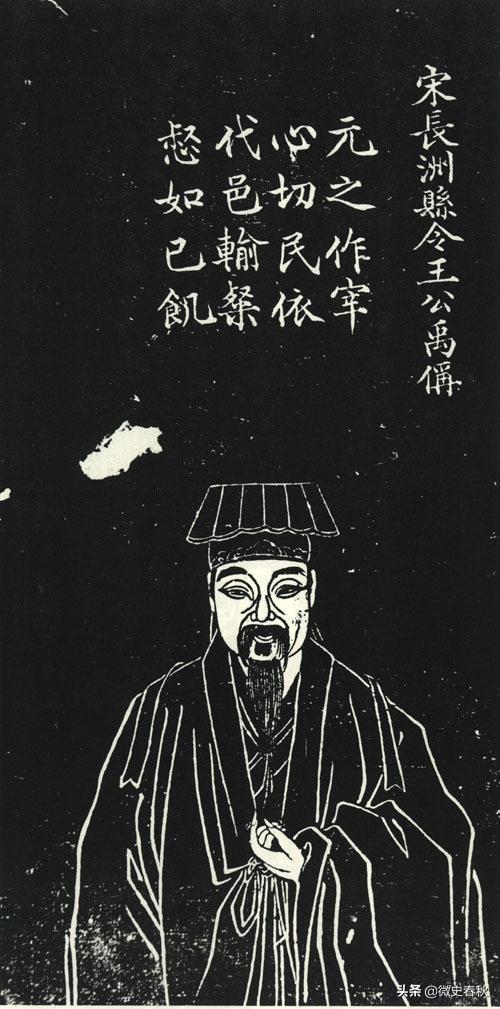 宋長洲縣令王公禹偁
元之作宰
心切民依
代邑輸粲
惄如已飢
头条 @微史春秋